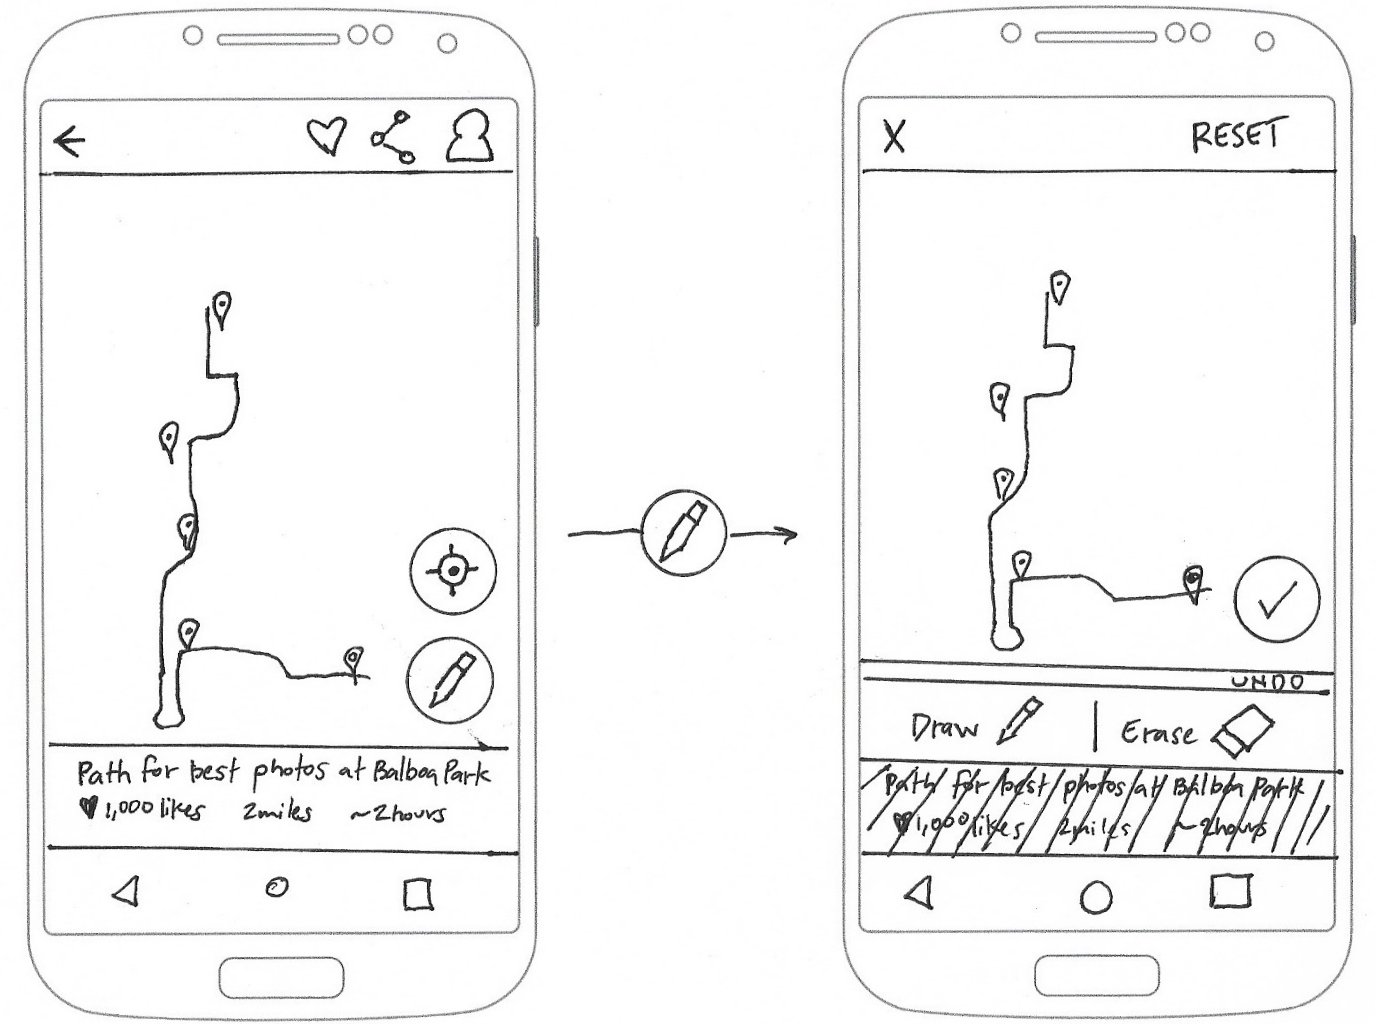 Path for best photos at Balboa Park
♥ 1,000 likes 2miles ~2hours
X RESET
UNDO
Draw | Erase
Path for best photos at Balboa Park
♥ 1,000 likes 2miles ~2hours